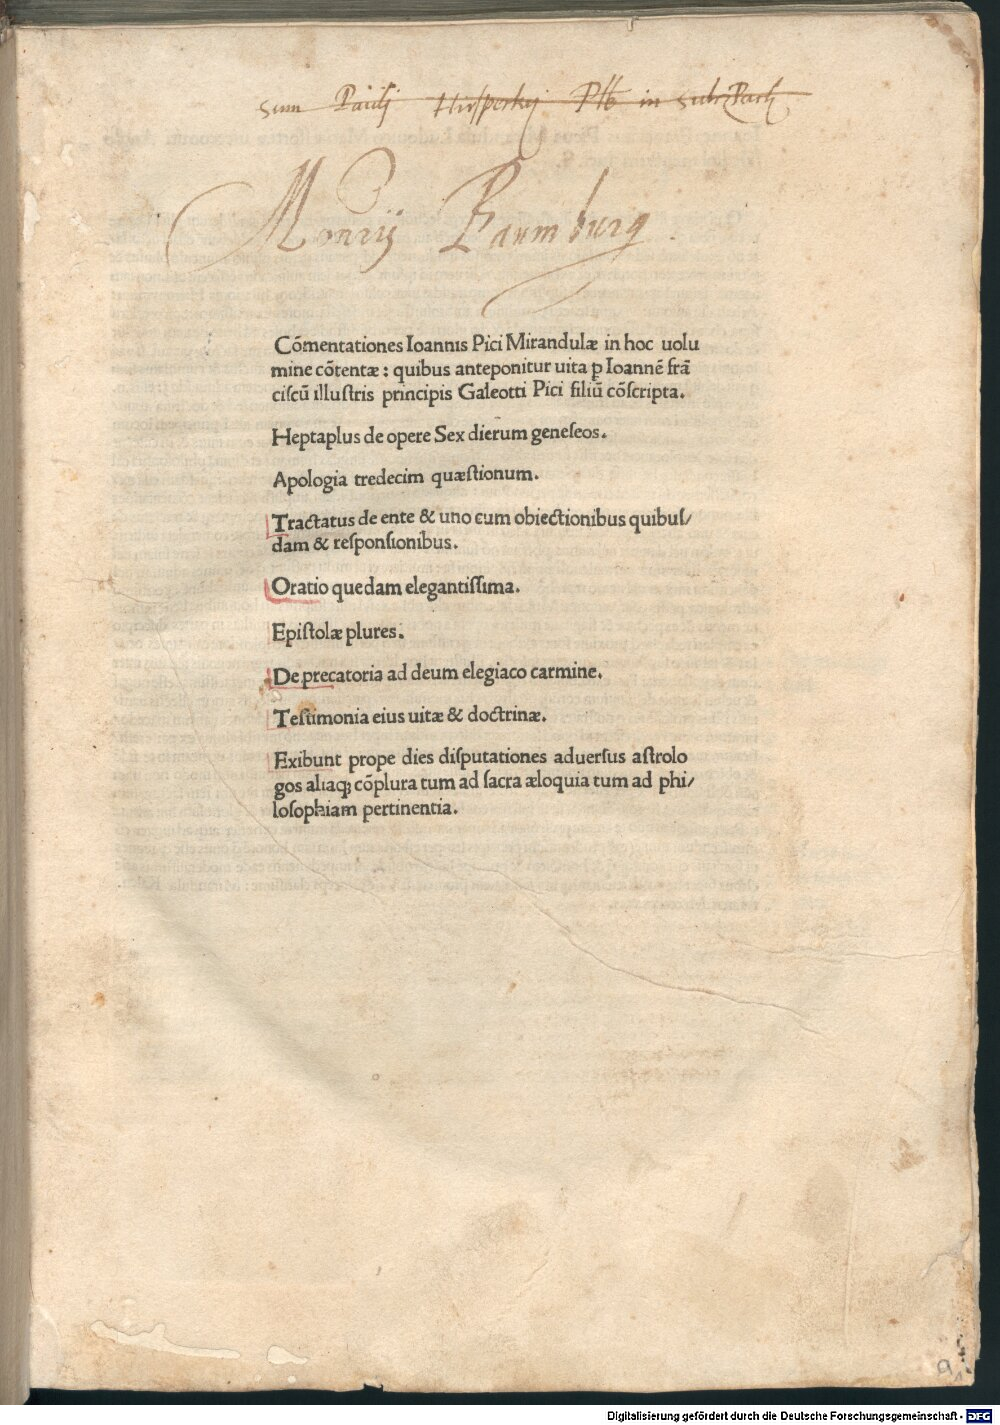 Sum Pauli
Monrij Baumburg.
Cõmentationes Ioannis Pici Mirandulæ in hoc uolu
mine cõtentæ : quibus anteponitur uita ꝑ Ioannẽ frã
ciſcũ illuſtris principis Galeotti Pici filiũ cõſcripta.
Heptaplus de opere Sex dierum geneſeos.
Apologia tredecim quæſtionum.
Tractatus de ente & uno cum obiectionibus quibuſ/
dam & reſponſionibus.
Oratio quedam elegantiſſima.
Epiſtolæ plures.
De precatoria ad deum elegiaco carmine.
Teſtimonia eius uitæ & doctrinæ.
Exibunt prope dies diſputationes aduerſus aſtrolo
gos aliaqꝫ cõplura tum ad ſacra æloquia tum ad phi/
loſophiam pertinentia.
Digitalisierung gefördert durch die Deutsche Forschungsgemeinschaft - DFG